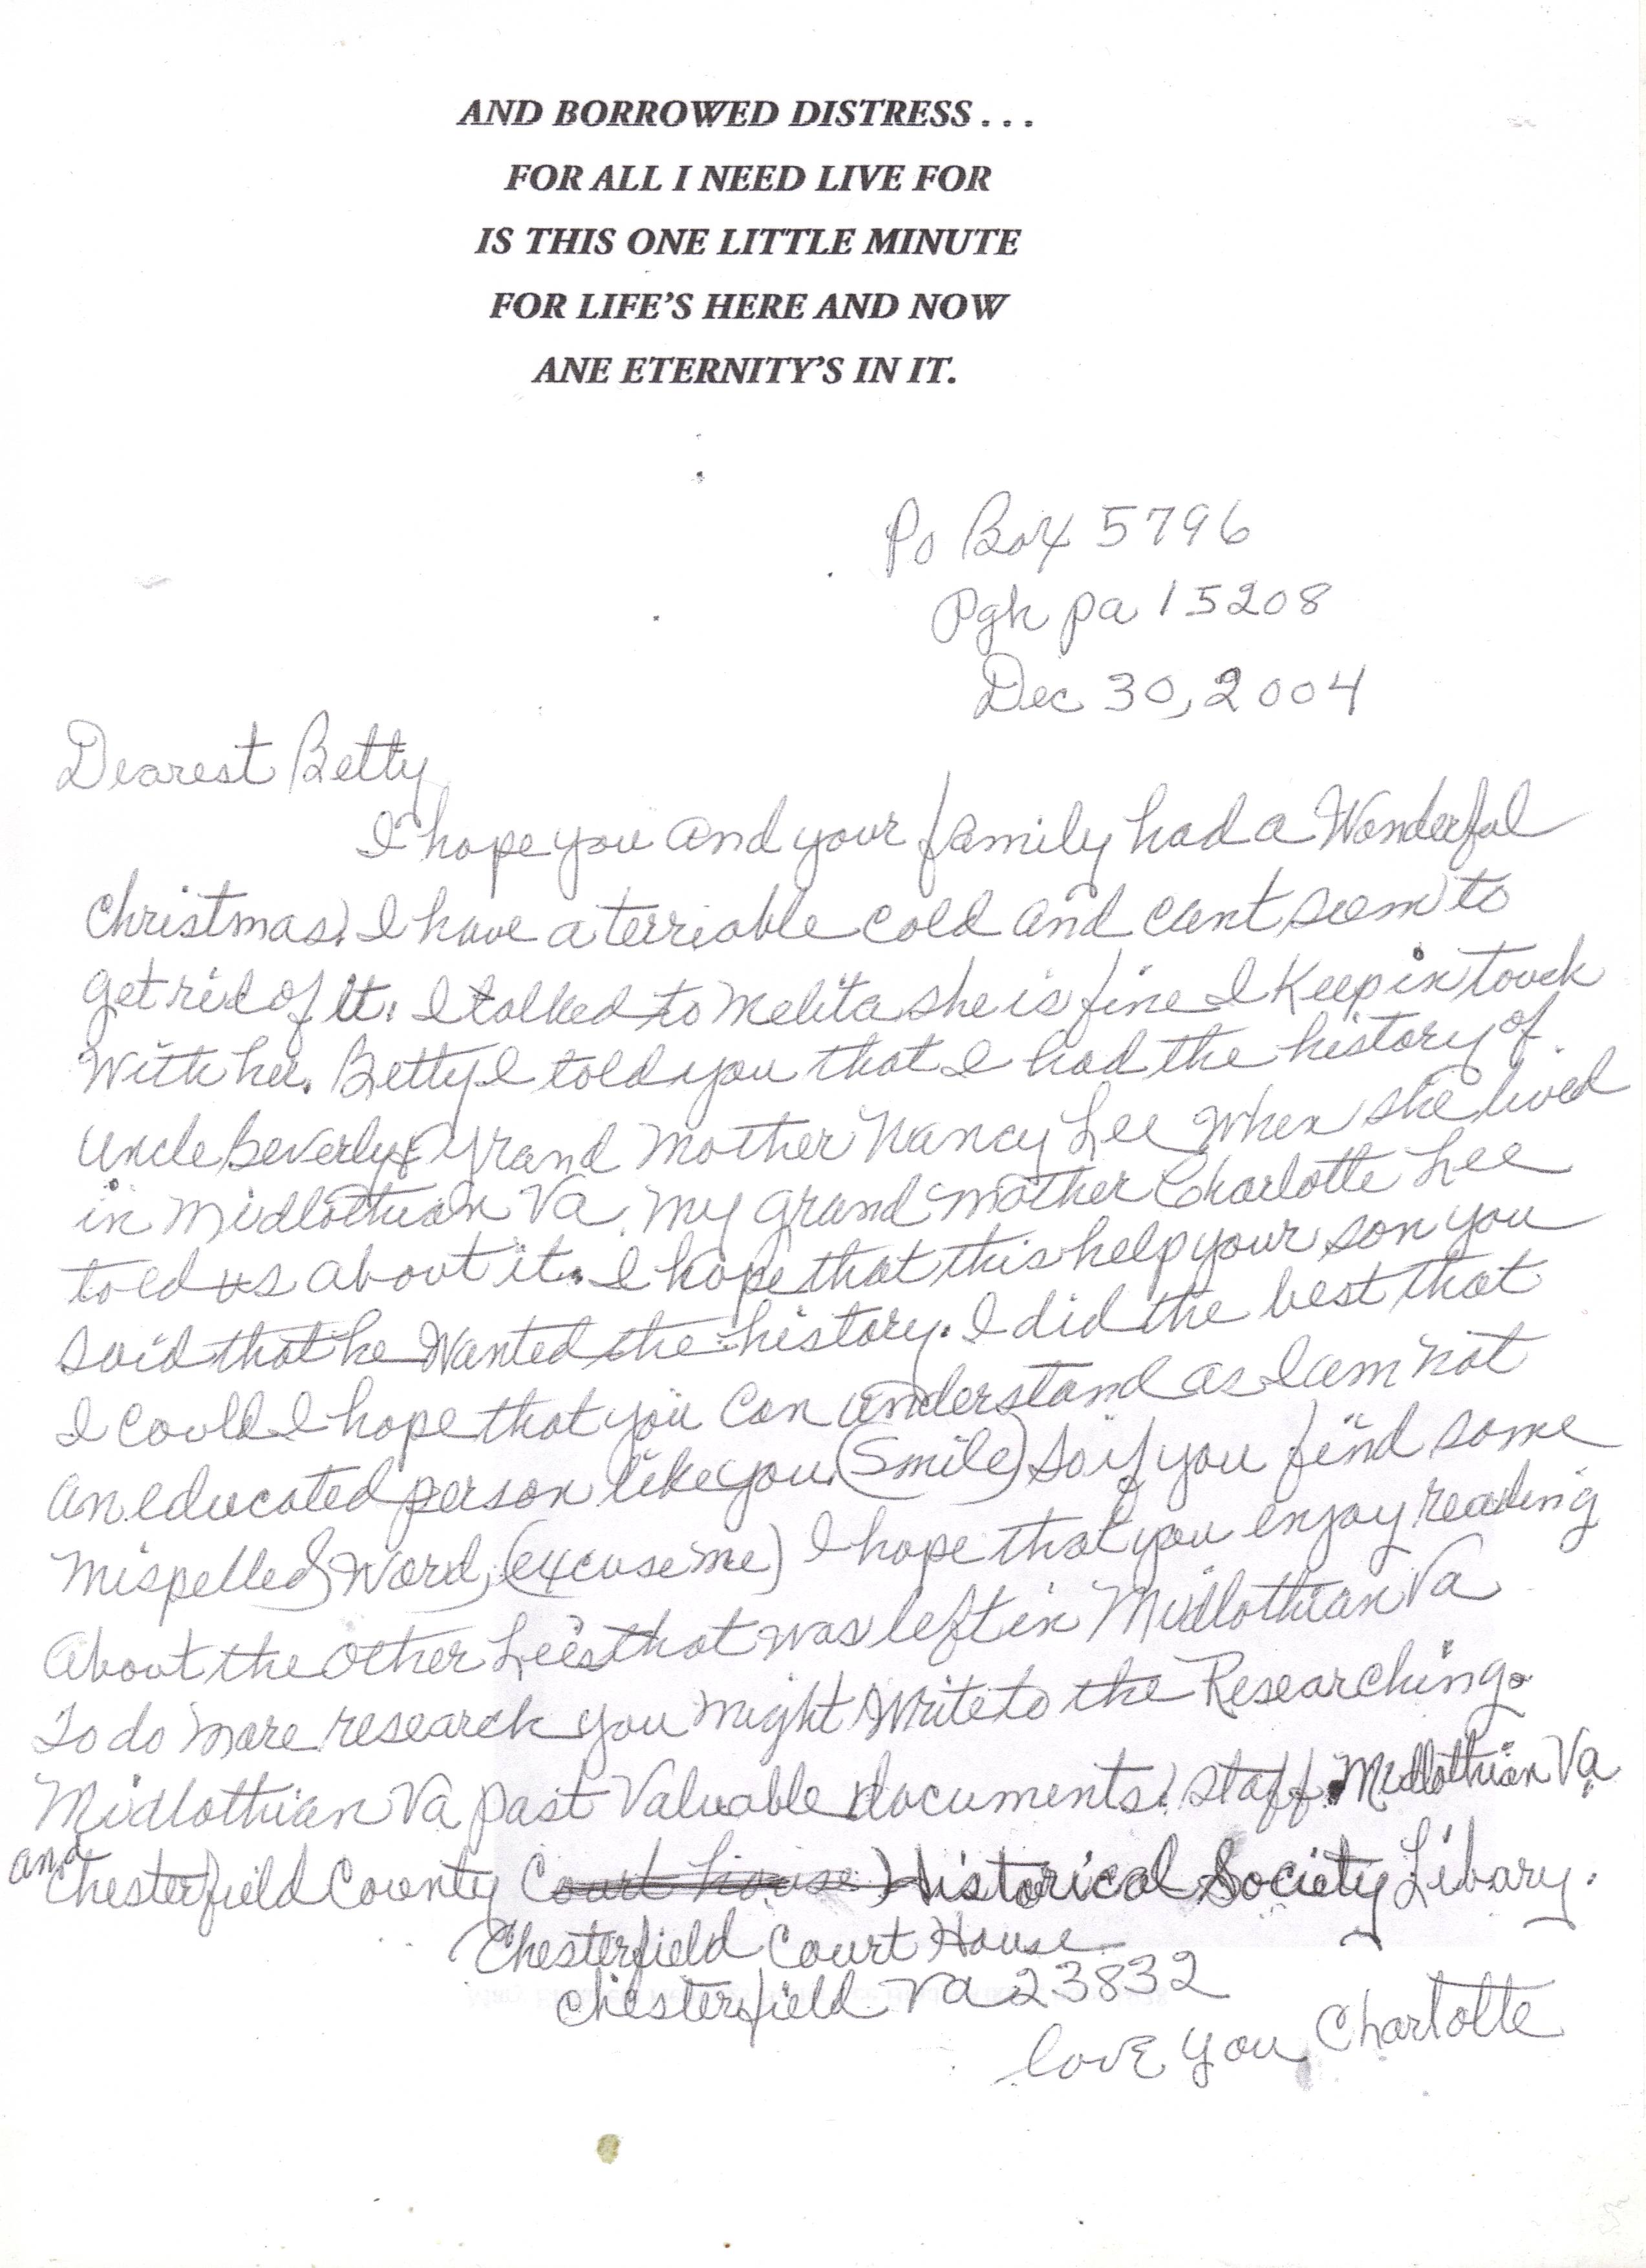 AND BORROWED DISTRESS...
FOR ALL I NEED LIVE FOR
IS THIS ONE LITTLE MINUTE
FOR LIFE'S HERE AND NOW
ANE ETERNITY'S IN IT.
Po Box 5796
Pgh pa 15208
Dec 30, 2004
Dearest Betty
I hope you and your family had a Wonderful
Christmas. I have a terriable cold and cant seem to
get rid of it. I talked to Melita she is fine I Keep in touch
With her. Betty I told you that I had the history of
Uncle Beverly & Grand Mother Nancy Lee When she lived
in Midlothian Va. My grand mother Charlotte Lee
told us about it. I hope that this help your son you
said that he Wanted the history. I did the best that
I could I hope that you can understand as I am not
an educated person like you. (Smile) So if you find some
Mispelled Word, (excuse me) I hope that you enjoy reading
About the other Lee's that was left in Midlothian Va
To do more research you might Write to the Researching.
Midlothian Va past Valuable documents. Staff. Midlothian Va
and Chesterfield County Court house Historical Society Libary.
Chesterfield Court House
Chesterfield Va 23832
love you, Charlotte